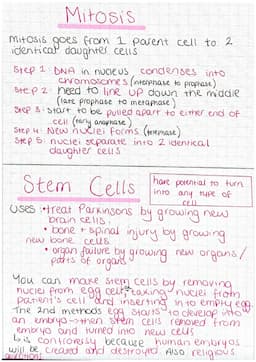 Mitosis
mitosis goes from 1 parent cell to 2
identical daughter cells
Step 1: DNA in nucleus condenses into
chromosomes (interphase to prophase)
Step 2: need to line up down the middle
(late prophase to metaphase)
Step 3: start to be pulled apart to either end of
cell (early anaphase)
Step 4: New nuclei forms (telophase)
Step 5: nuclei separate into 2 identical
daughter cells
Stem Cells
have potential to turn
into any type of
cell
USES: • treat Parkinsons by growing new
brain cells.
• bone + spinal injury by growing
new bone cells
• organ failure by growing new organs/
parts of organs
You can make stem cells by removing
nuclei from egg cell, taking nuclei from
patient's cell and inserting into empty egg
The 2nd methods egg starts to develop into
an embryo → then stem cells removed from
embryo and turned into new cells
↳ is controversy because human embryos
will be created and destroyed. Also religious